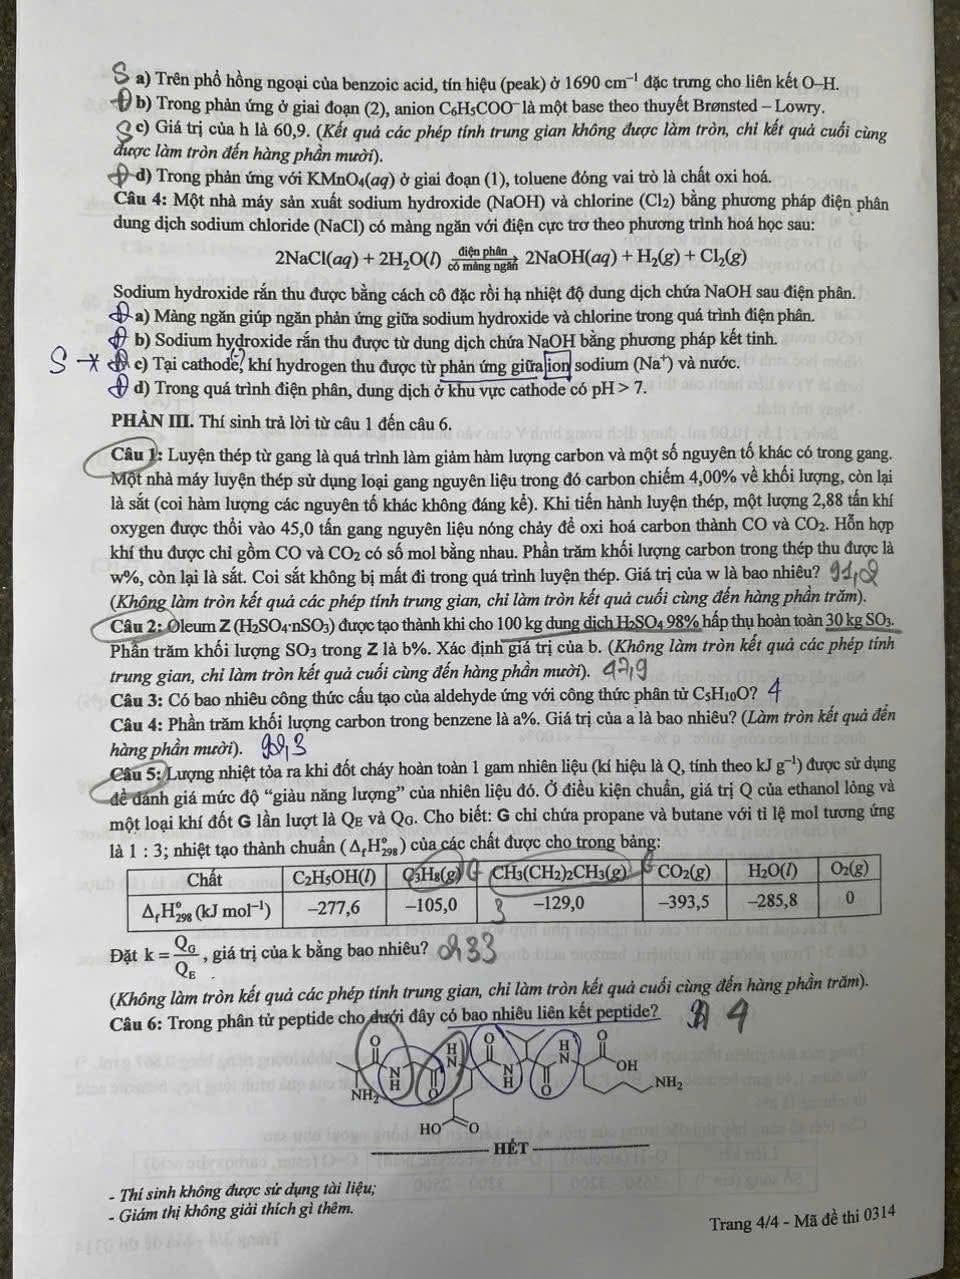 S a) Trên phổ hồng ngoại của benzoic acid, tín hiệu (peak) ở 1690 cm⁻¹ đặc trưng cho liên kết O–H.
Đ b) Trong phản ứng ở giai đoạn (2), anion C₆H₅COO⁻ là một base theo thuyết Brønsted – Lowry.
S c) Giá trị của h là 60,9. (Kết quả các phép tính trung gian không được làm tròn, chỉ kết quả cuối cùng
được làm tròn đến hàng phần mười).
Đ d) Trong phản ứng với KMnO₄(aq) ở giai đoạn (1), toluene đóng vai trò là chất oxi hoá.
Câu 4: Một nhà máy sản xuất sodium hydroxide (NaOH) và chlorine (Cl₂) bằng phương pháp điện phân
dung dịch sodium chloride (NaCl) có màng ngăn với điện cực trơ theo phương trình hoá học sau:
2NaCl(aq) + 2H₂O(l) điện phân có màng ngăn → 2NaOH(aq) + H₂(g) + Cl₂(g)
Sodium hydroxide rắn thu được bằng cách cô đặc rồi hạ nhiệt độ dung dịch chứa NaOH sau điện phân.
Đ a) Màng ngăn giúp ngăn phản ứng giữa sodium hydroxide và chlorine trong quá trình điện phân.
Đ b) Sodium hydroxide rắn thu được từ dung dịch chứa NaOH bằng phương pháp kết tinh.
S c) Tại cathode, khí hydrogen thu được từ phản ứng giữa ion sodium (Na⁺) và nước.
Đ d) Trong quá trình điện phân, dung dịch ở khu vực cathode có pH > 7.
PHẦN III. Thí sinh trả lời từ câu 1 đến câu 6.
Câu 1: Luyện thép từ gang là quá trình làm giảm hàm lượng carbon và một số nguyên tố khác có trong gang.
Một nhà máy luyện thép sử dụng loại gang nguyên liệu trong đó carbon chiếm 4,00% về khối lượng, còn lại
là sắt (coi hàm lượng các nguyên tố khác không đáng kể). Khi tiến hành luyện thép, một lượng 2,88 tấn khí
oxygen được thổi vào 45,0 tấn gang nguyên liệu nóng chảy để oxi hoá carbon thành CO và CO₂. Hỗn hợp
khí thu được chỉ gồm CO và CO₂ có số mol bằng nhau. Phần trăm khối lượng carbon trong thép thu được là
w%, còn lại là sắt. Coi sắt không bị mất đi trong quá trình luyện thép. Giá trị của w là bao nhiêu?
(Không làm tròn kết quả các phép tính trung gian, chỉ làm tròn kết quả cuối cùng đến hàng phần trăm).
Câu 2: Oleum Z (H₂SO₄·nSO₃) được tạo thành khi cho 100 kg dung dịch H₂SO₄ 98% hấp thụ hoàn toàn 30 kg SO₃.
Phần trăm khối lượng SO₃ trong Z là b%. Xác định giá trị của b. (Không làm tròn kết quả các phép tính
trung gian, chỉ làm tròn kết quả cuối cùng đến hàng phần mười).
Câu 3: Có bao nhiêu công thức cấu tạo của aldehyde ứng với công thức phân tử C₅H₁₀O? 4
Câu 4: Phần trăm khối lượng carbon trong benzene là a%. Giá trị của a là bao nhiêu? (Làm tròn kết quả đến
hàng phần mười).
Câu 5: Lượng nhiệt tỏa ra khi đốt cháy hoàn toàn 1 gam nhiên liệu (kí hiệu là Q, tính theo kJ g⁻¹) được sử dụng
để đánh giá mức độ “giàu năng lượng” của nhiên liệu đó. Ở điều kiện chuẩn, giá trị Q của ethanol lỏng và
một loại khí đốt G lần lượt là Q_E và Q_G. Cho biết: G chỉ chứa propane và butane với tỉ lệ mol tương ứng
là 1 : 3; nhiệt tạo thành chuẩn (Δ_fH°₂₉₈) của các chất được cho trong bảng:
Chất C₂H₅OH(l) C₃H₈(g) CH₃(CH₂)₂CH₃(g) CO₂(g) H₂O(l) O₂(g)
Δ_fH°₂₉₈ (kJ mol⁻¹) –277,6 –105,0 –129,0 –393,5 –285,8 0
Đặt k = Q_G/Q_E, giá trị của k bằng bao nhiêu?
(Không làm tròn kết quả các phép tính trung gian, chỉ làm tròn kết quả cuối cùng đến hàng phần trăm).
Câu 6: Trong phân tử peptide cho dưới đây có bao nhiêu liên kết peptide? 4
O H N O H N O
NH₂ N H O N H O OH NH₂
HO O
HẾT
- Thí sinh không được sử dụng tài liệu;
- Giám thị không giải thích gì thêm.
Trang 4/4 - Mã đề thi 0314